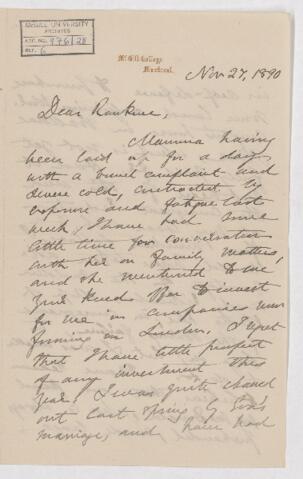 McGILL UNIVERSITY
ARCHIVES
ACC. NO. 976/28
REF. 6
McGill College,
Montreal.
Nov 27, 1890
Dear Rankine,
Mamma having
been laid up for a day
with a bowel complaint and
severe cold, contracted by
exposure and fatigue last
week, I have had some
little time for conversation
with her on family matters,
and she mentioned to me
your kind offer to invest
for me in companies now
forming in London. I regret
that I have little prospect
of any investment this
year. I was quite cleaned
out last spring by Eva's
marriage, and have had